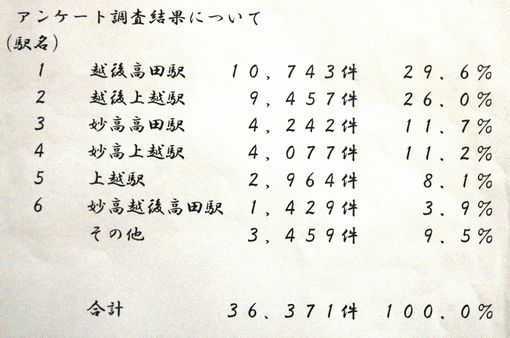 アンケート調査結果について
(駅名)
1 越後高田駅 10,743件 29.6%
2 越後上越駅 9,457件 26.0%
3 妙高高田駅 4,242件 11.7%
4 妙高上越駅 4,077件 11.2%
5 上越駅 2,964件 8.1%
6 妙高越後高田駅 1,429件 3.9%
その他 3,459件 9.5%
合計 36,371件 100.0%